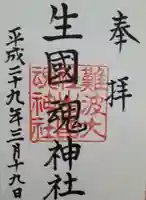 奉拝
生國魂神社
平成二十九年三月十九日
難波大
魂神社